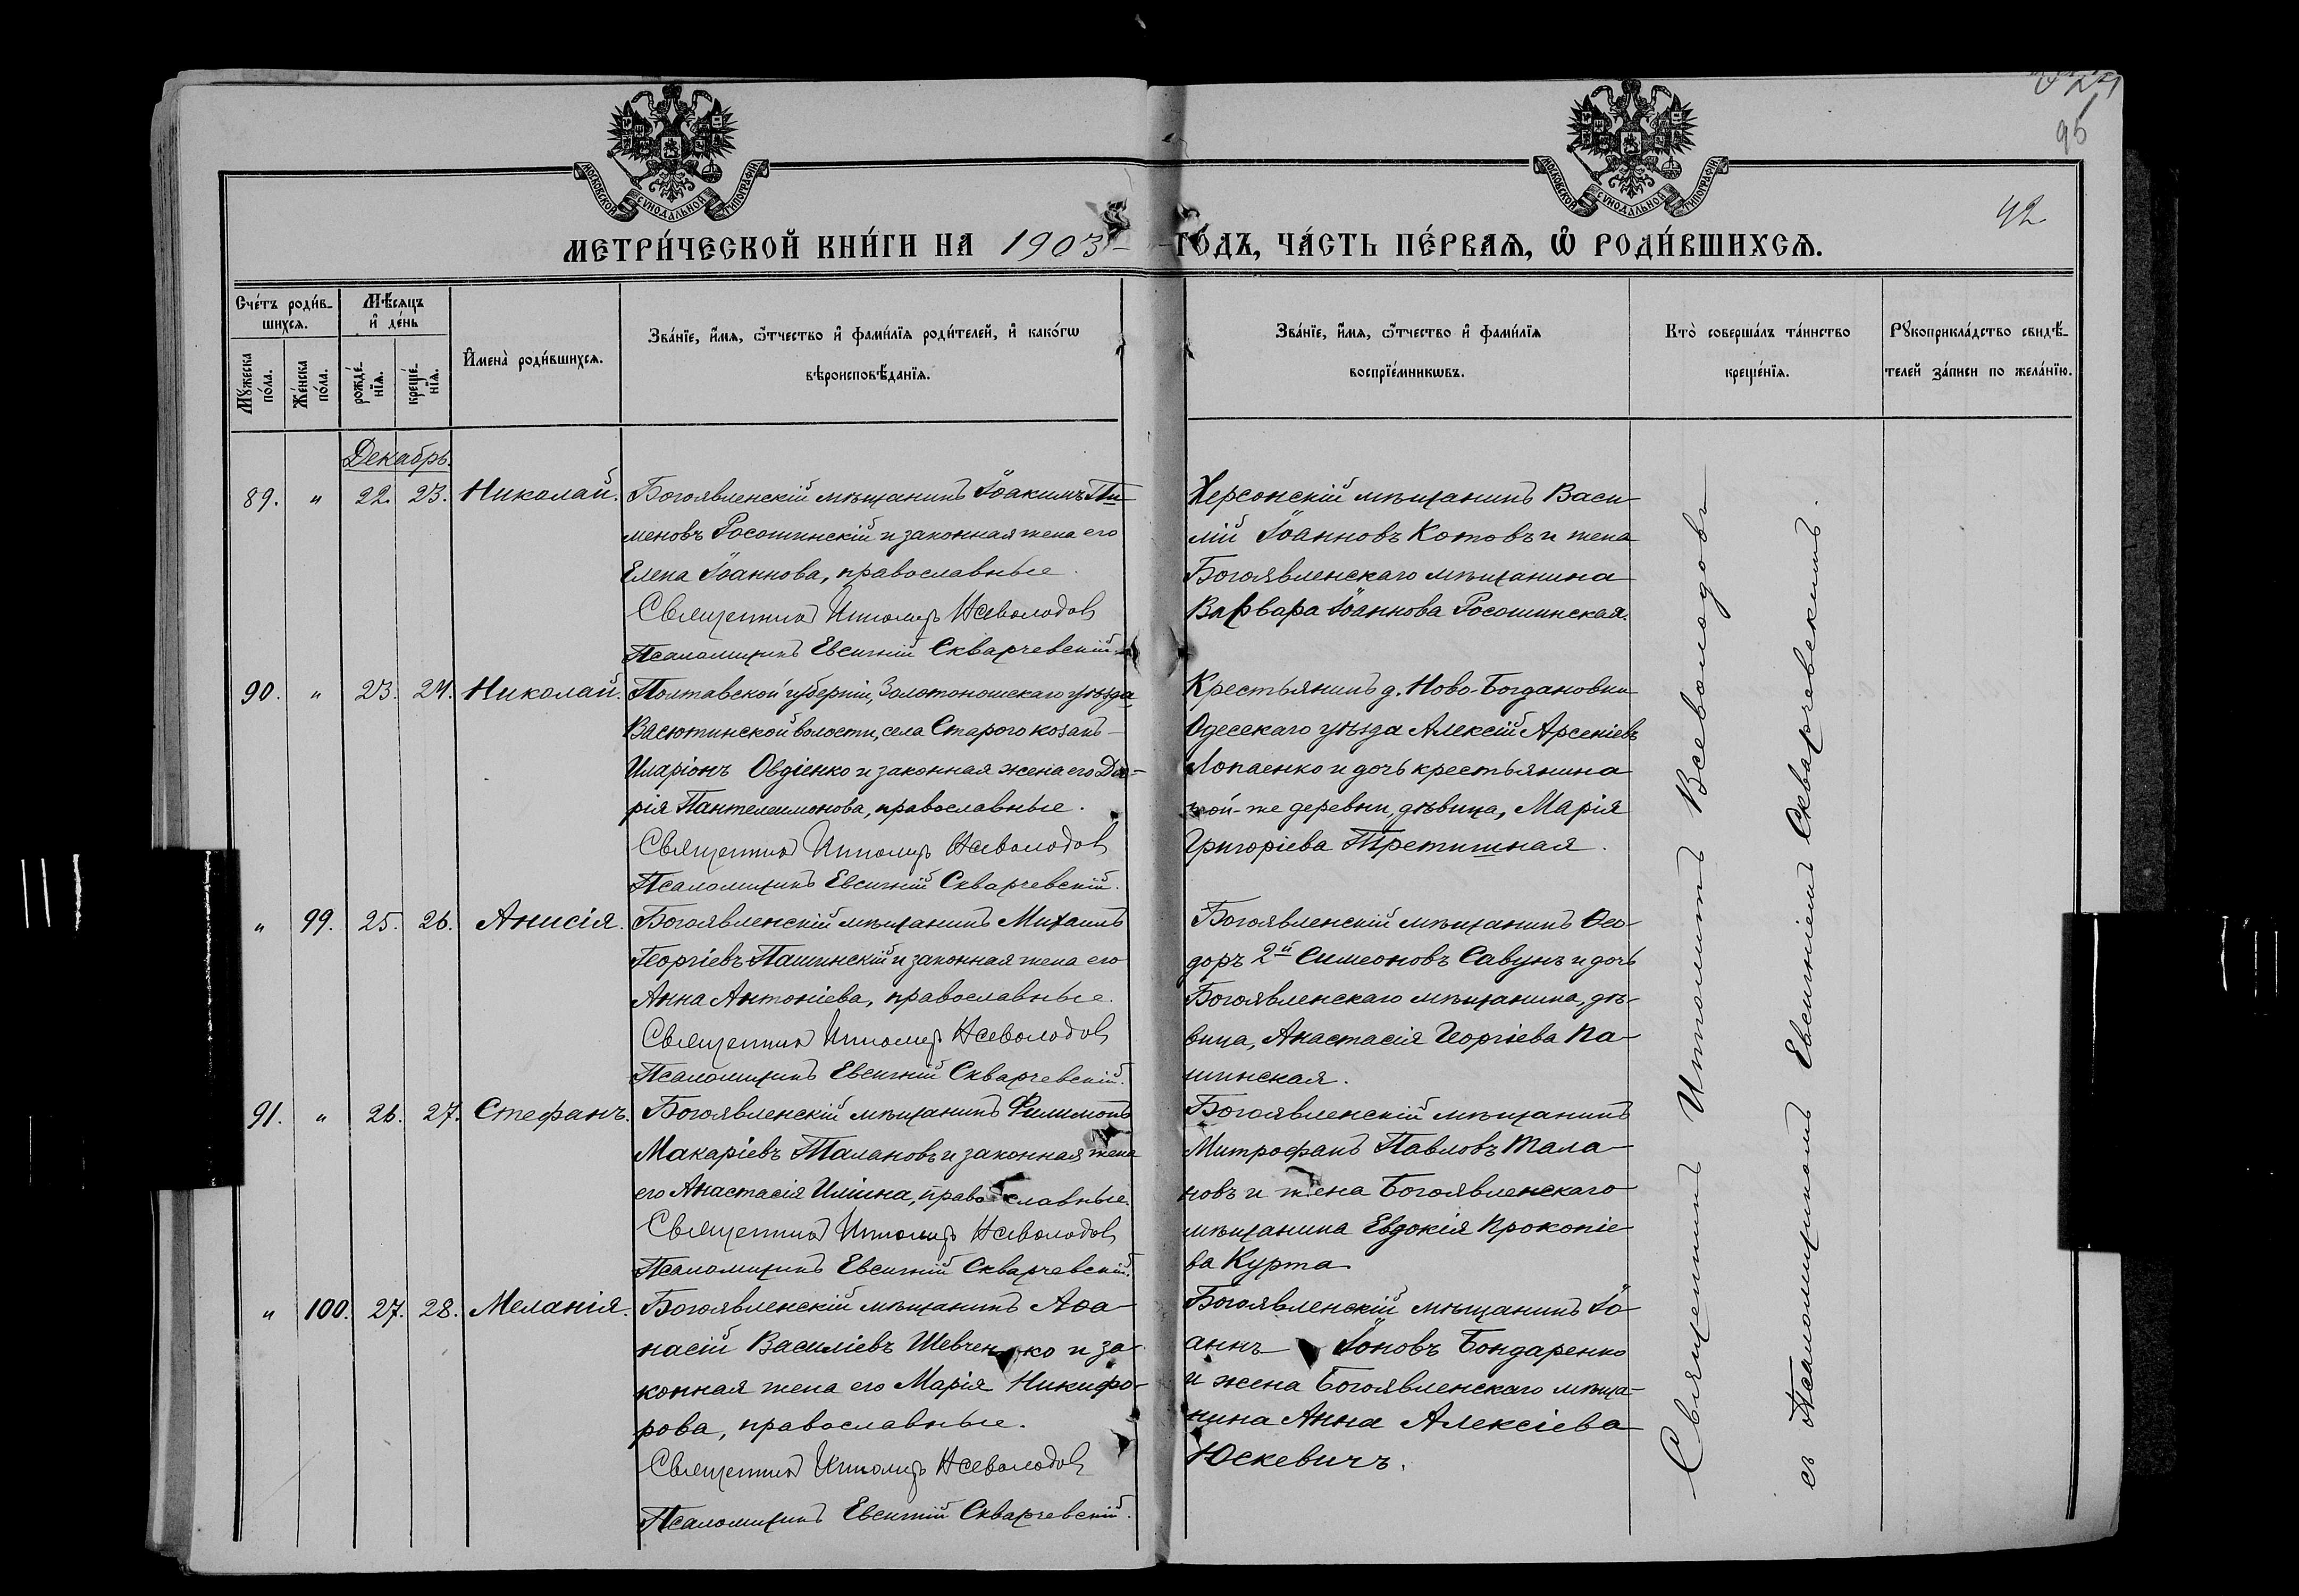 95
42
МОСКОВСКОЙ СѴНОДАЛЬНОЙ ТИПОГРАФІИ
МОСКОВСКОЙ СѴНОДАЛЬНОЙ ТИПОГРАФІИ
МЕТРИ́ЧЕСКОЙ КНИ́ГИ НА 1903 ГО́ДЪ, ЧА́СТЬ ПЕ́РВАѦ, Ѽ РОДИ́ВШИХСѦ.
Сче́тъ роди́в-
шихсѧ.
Мꙋжеска по́ла.
Же́нска по́ла.
Мѣ́сѧцъ
и҆ де́нь
рожде́-
нїѧ.
креще́-
нїѧ.
И҆мена̀ роди́вшихсѧ.
Зва́нїе, и҆́мѧ, ѻ҆́тчество и҆ фами́лїѧ роди́телей, и҆ како́гѡ
вѣроисповѣ́данїѧ.
Зва́нїе, и҆́мѧ, ѻ҆́тчество и҆ фами́лїѧ
воспрїе́мникѡвъ.
Кто̀ соверша́лъ та́инство
креще́нїѧ.
Рꙋкоприкла́дство свидѣ́-
телей за́писи по жела́нїю.
Декабрь.
89. " 22. 23. Николай.
Богоявленскій мѣщанинъ Іоакимъ Пи-
меновъ Росошинскій и законная жена его
Елена Іоаннова, православные.
Священникъ Ипполитъ Всеволодовъ
Псаломщикъ Евсигній Скварчевскій.
Херсонскій мѣщанинъ Васи-
лій Іоанновъ Котовъ и жена
Богоявленскаго мѣщанина
Варвара Іоаннова Росошинская.
90. " 23. 24. Николай.
Полтавской губерніи, Золотоношскаго уѣзда,
Васютинской волости, села Старого козакъ
Иларіонъ Овдіенко и законная жена его Да-
рія Пантелеимонова, православные.
Священникъ Ипполитъ Всеволодовъ
Псаломщикъ Евсигній Скварчевскій.
Крестьянинъ д. Ново-Богдановки
Одесскаго уѣзда Алексій Арсеніевъ
Лопаенко и дочь крестьянина
той-же деревни, дѣвица, Марія
Григоріева Третишная.
" 99. 25. 26. Анисія.
Богоявленскій мѣщанинъ Михаилъ
Георгіевъ Пашинскій и законная жена его
Анна Антоніева, православные.
Священникъ Ипполитъ Всеволодовъ
Псаломщикъ Евсигній Скварчевскій.
Богоявленскій мѣщанинъ Ѳео-
доръ 2й Симеоновъ Савунъ и дочь
Богоявленскаго мѣщанина, дѣ-
вица, Анастасія Георгіева Па-
шинская.
91. " 26. 27. Стефанъ.
Богоявленскій мѣщанинъ Филимонъ
Макаріевъ Талановъ и законная жена
его Анастасія Иліина, православные.
Священникъ Ипполитъ Всеволодовъ
Псаломщикъ Евсигній Скварчевскій.
Богоявленскій мѣщанинъ
Митрофанъ Павловъ Тала-
новъ и жена Богоявленскаго
мѣщанина Евдокія Прокопіе-
ва Курта
" 100. 27. 28. Меланія.
Богоявленскій мѣщанинъ Аѳа-
насій Василіевъ Шевченко и за-
конная жена его Марія Никифо-
рова, православные.
Священникъ Ипполитъ Всеволодовъ
Псаломщикъ Евсигній Скварчевскій.
Богоявленскій мѣщанинъ Іо-
аннъ Іоновъ Бондаренко
и жена Богоявленскаго мѣща-
нина Анна Алексіева
Юскевичъ.
Священникъ Ипполитъ Всеволодовъ
съ Псаломщикомъ Евсигніемъ Скварчевскимъ.